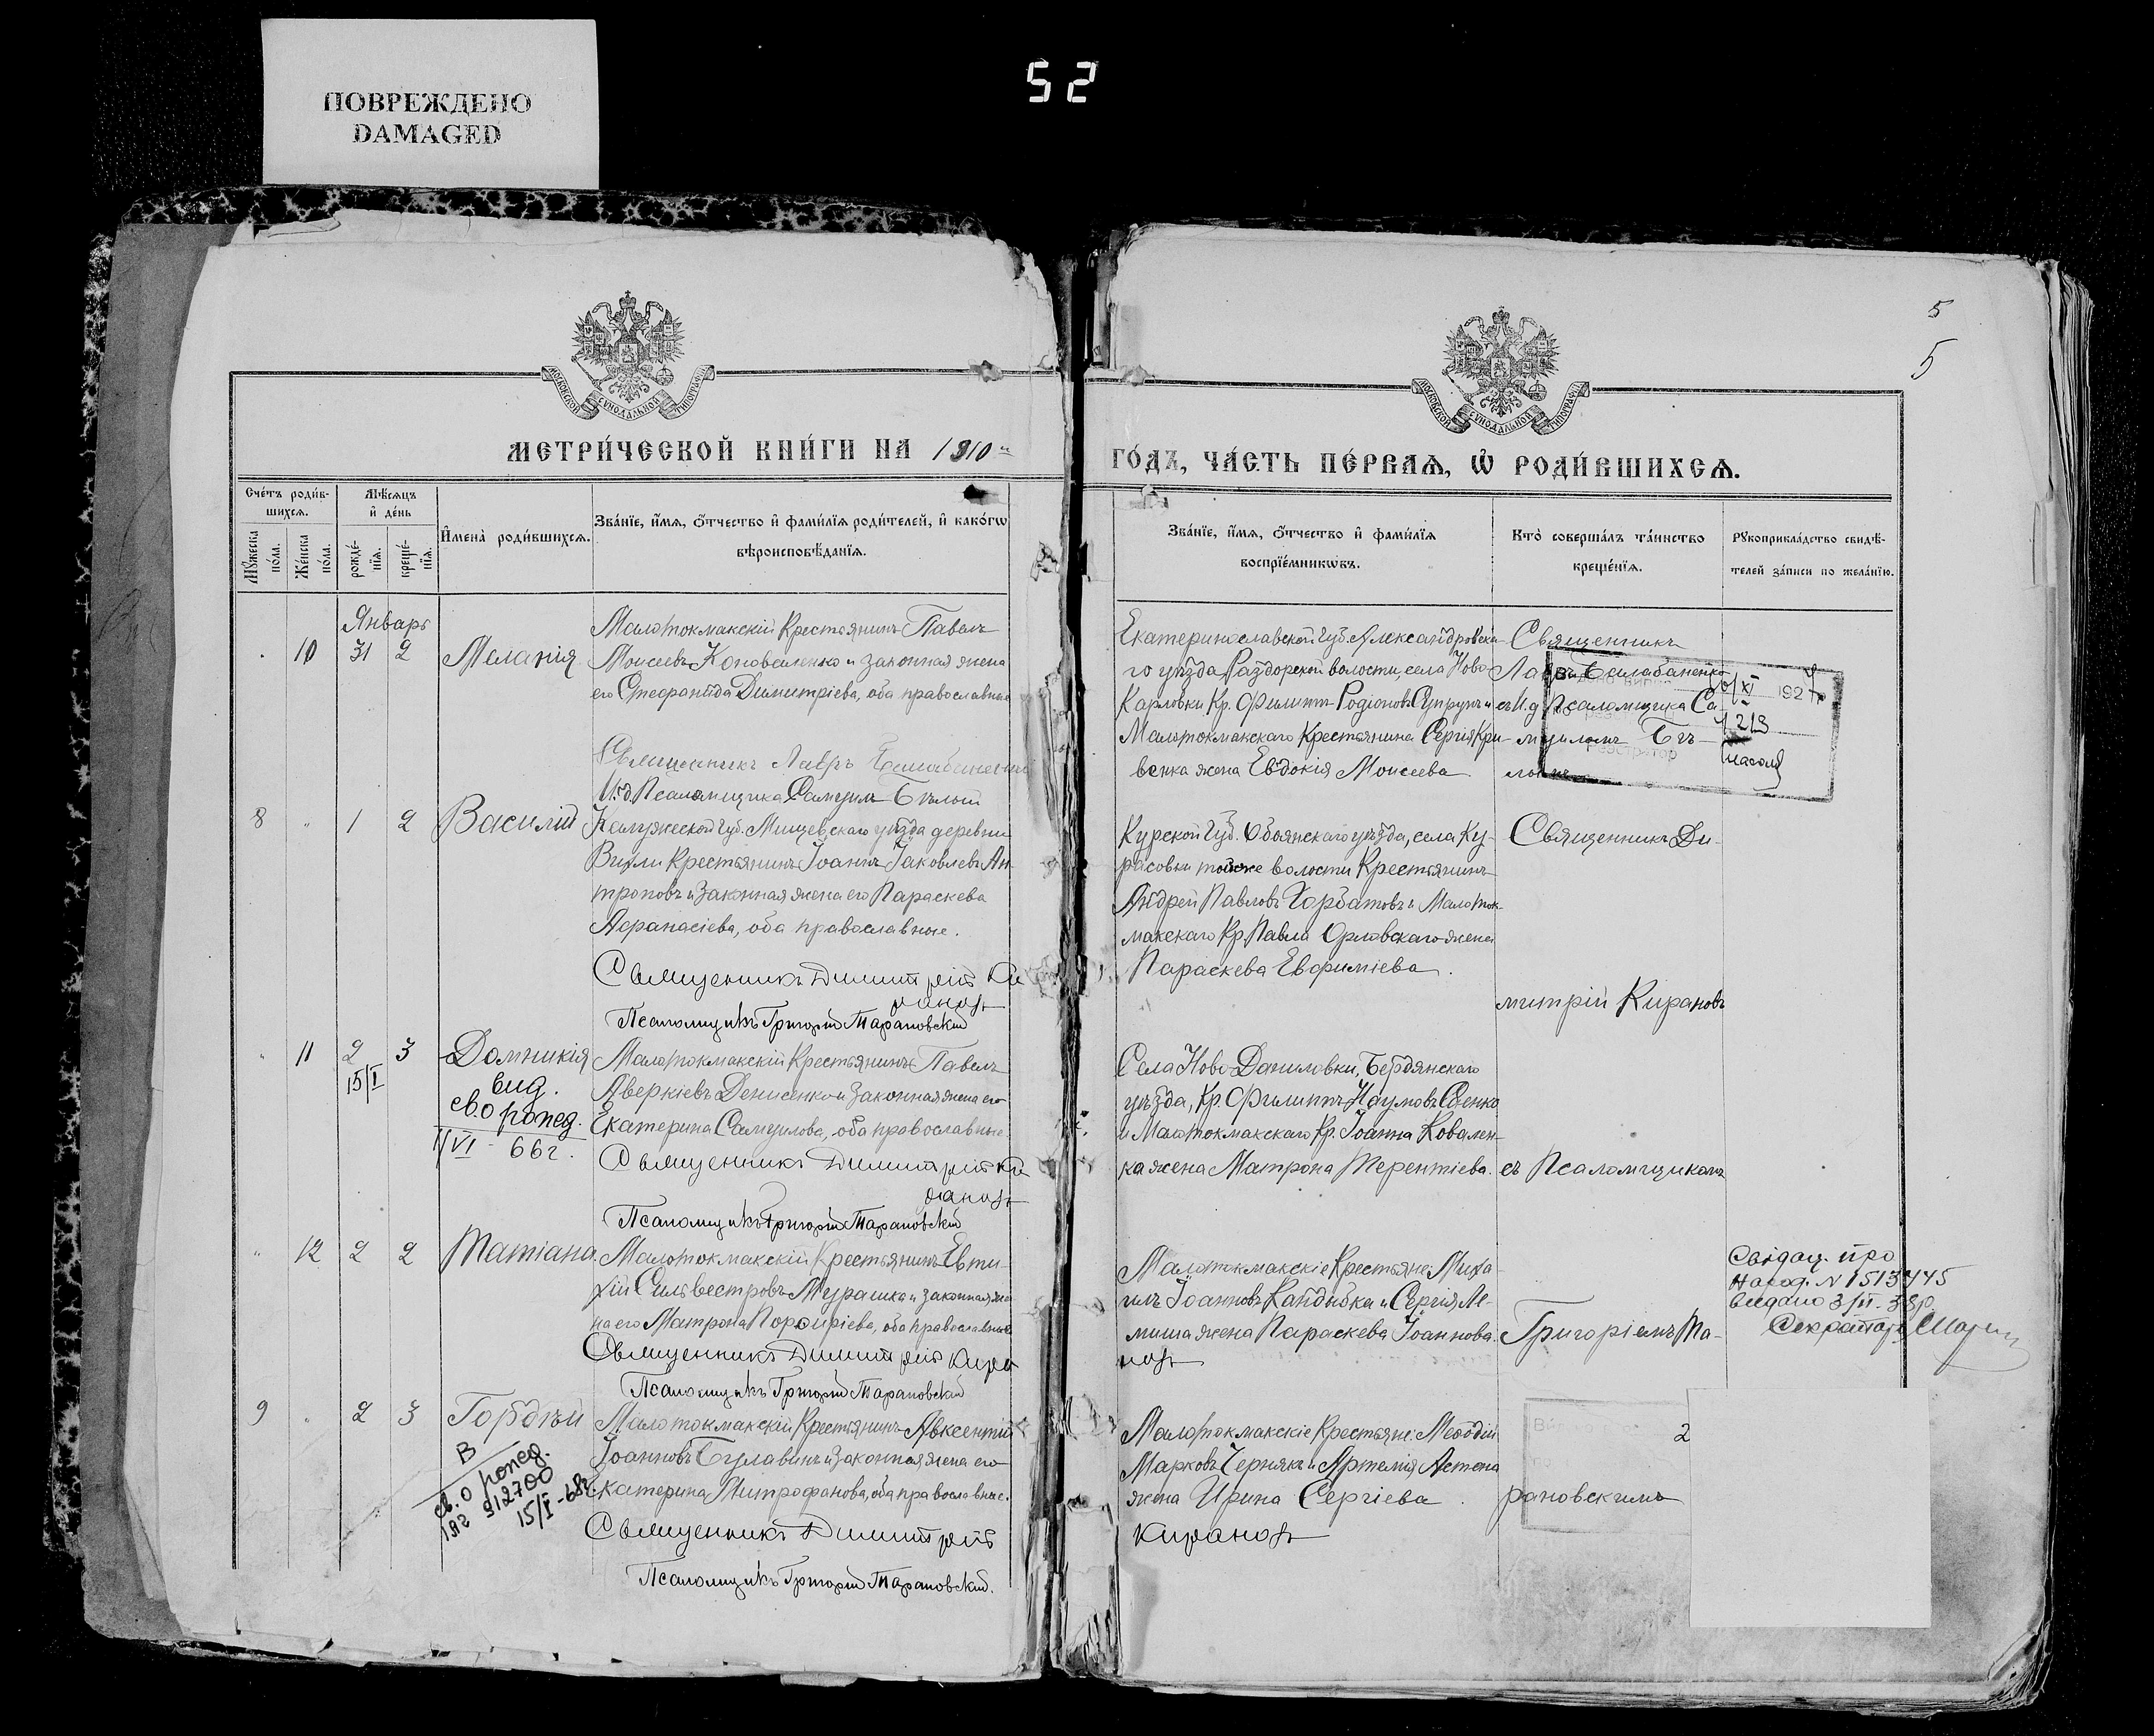 ПОВРЕЖДЕНО
DAMAGED
52
5
5
МОСКОВСКОЙ СѴНОДАЛЬНОЙ ТИПОГРАФІИ
МОСКОВСКОЙ СѴНОДАЛЬНОЙ ТИПОГРАФІИ
МЕТРИ́ЧЕСКОЙ КНИ́ГИ НА 1910 й
ГО́ДЪ, ЧА́СТЬ ПЕ́РВАЯ, Ѡ҆ РОДИ́ВШИХСЯ.
Сче́тъ роди́в-
шихся.
Мѣ́сяцъ
и҆ де́нь
Мꙋ́жеска
по́ла.
Же́нска
по́ла.
рожде́-
нїя.
креще́-
нїя.
И҆мена̀ роди́вшихся.
Зва́нїе, и҆́мя, ѻ҆́тчество и҆ фами́лїя роди́телей, и҆ како́гѡ
вѣроисповѣ́данїя.
Зва́нїе, и҆́мя, ѻ҆́тчество и҆ фами́лїя
воспрїе́мникѡвъ.
Кто̀ соверша́лъ та́инство
креще́нїя.
Рꙋкоприкла́дство свидѣ́-
телей за́писи по жела́нїю.
Январь
10 31 2 Меланія
Малотокмакскій Крестьянинъ Павелъ
Моисеевъ Коноваленко и законная жена
его Стефанида Димитріева, оба православные
Священникъ Лавръ
И.д. Псаломщика Самуилъ Бѣлый
Екатеринославской губ. Александровска-
го уѣзда Раздорской волости, села Ново-
Карловки Кр. Филиппъ Родіоновъ Супрунъ и
Малотокмакскаго Крестьянина Сергія Кри-
венка жена Евдокія Моисеева
Священникъ
съ И.д. Псаломщика Са-
муиломъ Бѣ-
лымъ
XI 192
1213
8 " 1 2 Василій
Калужской губ. Мещевскаго уѣзда деревни
Крестьянинъ Іоаннъ Іаковлевъ Ан-
троповъ и законная жена его Параскева
Афанасіева, оба православные.
Священникъ Димитрій Ки
рановъ
Псаломщикъ Григорій Тарановскій
Курской Губ. Обоянскаго уѣзда, села Ку-
расовки тойже волости Крестьянинъ
Андрей Павловъ Горбатовъ и Малоток-
макскаго Кр. Павла Орловскаго жена
Параскева Евфиміева.
Священникъ Ди-
митрій Кирановъ
" 11 2 3 Домникія
15/I
вид.
св. о рожд.
1/VI - 66 г.
Малотокмакскій Крестьянинъ Павелъ
Аверкіевъ Денисенко и законная жена его
Екатерина Самуилова, оба православные.
Священникъ Димитрій Ки
рановъ
Псаломщикъ Григорій Тарановскій
Села Ново Даниловки, Бердянскаго
уѣзда, Кр. Филиппъ Наумовъ Саенко
и Малотокмакскаго Кр. Іоанна Ковален-
ка жена Матрона Терентіева.
съ Псаломщикомъ
" 12 2 2 Татіана.
Малотокмакскій Крестьянинъ Евти-
хій Сильвестровъ Мурашко и законная же-
на его Матрона Порфиріева, оба православные
Священникъ Димитрій Кира
Псаломщикъ Григорій Тарановскій
Малотокмакскіе Крестьяне: Миха-
илъ Іоанновъ Кандыбка и Сергія Ле-
миша жена Параскева Іоаннова.
новъ
Григоріемъ Та-
Свідоц. про
народ. N 1513445
видано 3/II-38р
Секретарь
9 " 2 3 Гордѣй
В
св. о рожд.
912700
15/I-68г.
Малотокмакскій Крестьянинъ Авксентій
Іоанновъ Булавинъ и законная жена его
Екатерина Митрофанова, оба православные.
Священникъ Димитрій
Псаломщикъ Григорій Тарановскій.
Малотокмакскіе Крестьяне: Меѳодій
Марковъ Чернякъ и Артемія
жена Ирина Сергіева.
Кирановъ
рановскимъ
2